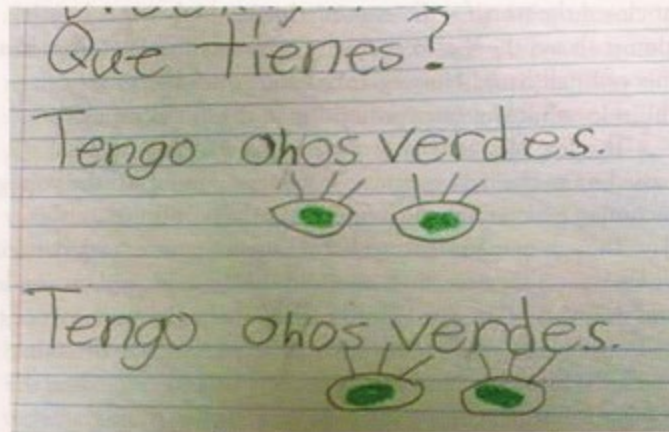 Que tienes?
Tengo ohos verdes.
Tengo ohos verdes.